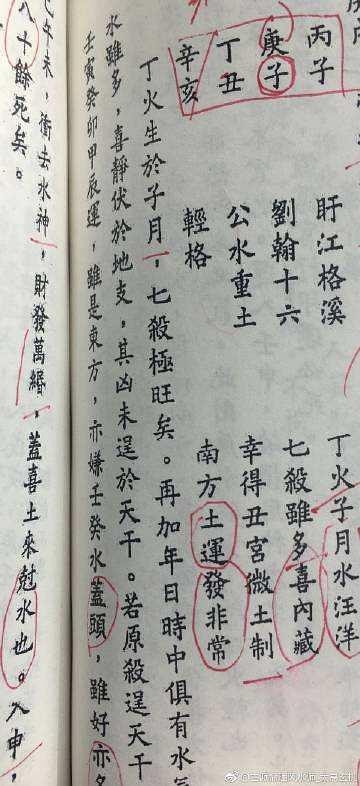 丙子 盱江格溪 丁火子月水汪洋
庚子 劉翰十六 七殺雖多喜內藏
丁丑 公水重土 幸得丑宮微土制
辛亥 輕格 南方土運發非常
丁火生於子月，七殺極旺矣。再加年日時中俱有水
水雖多，喜靜伏於地支。其凶未逞於天干。若原殺逞天干
壬寅癸卯甲辰運，雖是東方，亦嫌壬癸水蓋頭，雖好亦多
午未，衝去水神，財發萬緡，蓋喜土來尅水也。入申，
八十餘死矣。